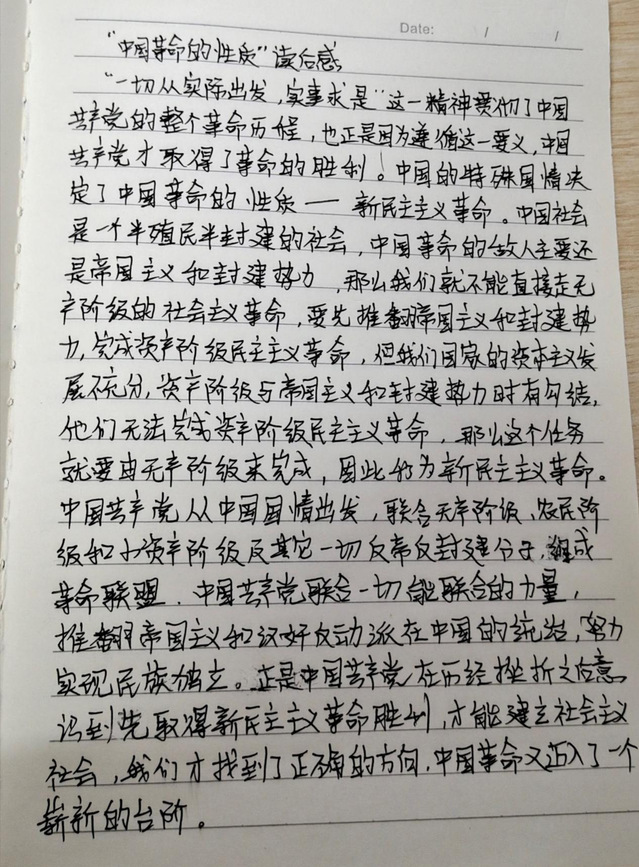 Date: / /
"中国革命的性质"读后感
"一切从实际出发,实事求是"这一精神贯彻了中国
共产党的整个革命历程,也正是因为遵循这一要义,中国
共产党才取得了革命的胜利!中国的特殊国情决
定了中国革命的性质——新民主主义革命。中国社会
是一个半殖民半封建的社会,中国革命的敌人主要还
是帝国主义和封建势力,那么我们就不能直接走无
产阶级的社会主义革命,要先推翻帝国主义和封建势
力,完成资产阶级民主主义革命,但我们国家的资本主义发
展不充分,资产阶级与帝国主义和封建势力时有勾结,
他们无法完成资产阶级民主主义革命,那么这个任务
就要由无产阶级来完成,因此称为新民主主义革命。
中国共产党从中国国情出发,联合无产阶级、农民阶
级和小资产阶级及其它一切反帝反封建分子,组成
革命联盟.中国共产党联合一切能联合的力量,
推翻帝国主义和汉奸反动派在中国的统治,努力
实现民族独立。正是中国共产党在历经挫折之后意
识到先取得新民主主义革命胜利,才能建立社会主义
社会,我们才找到了正确的方向.中国革命又迈入了一个
崭新的台阶。